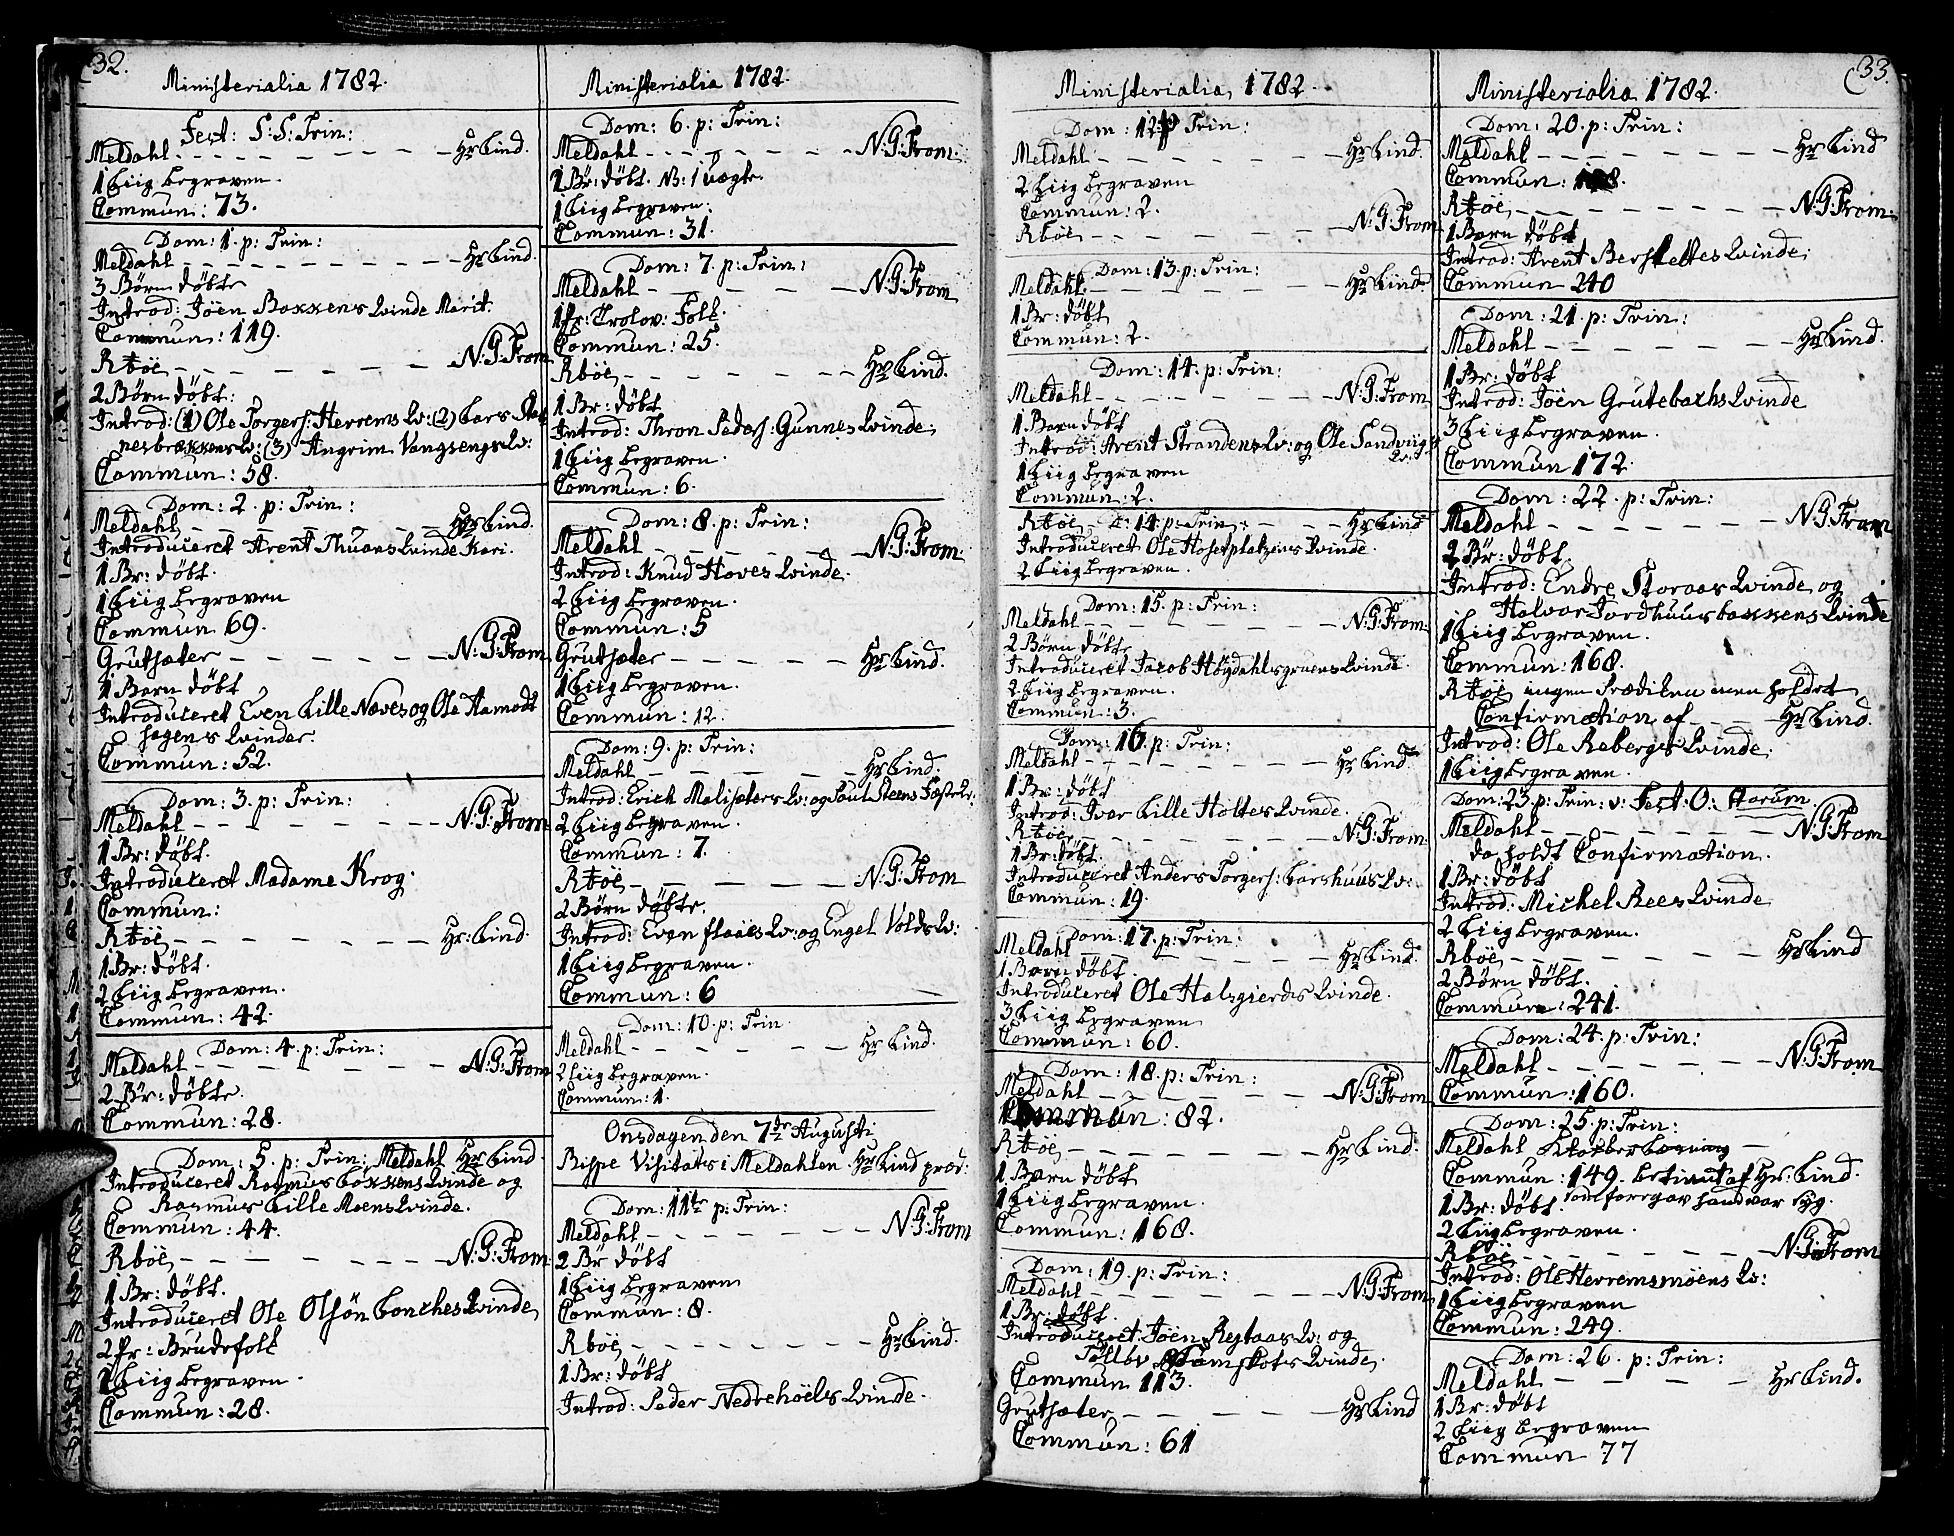 32.
Ministerialia 1782.
Fest: S:S: Trin:
Meldahl - - - Hr Lind.
1 Liig begraven.
Commun: 73.
Dom: 1. p: Trin:
Meldahl - - - Hr Lind.
3 Börn döbte
Introd: Jöen Boxxens Qvinde Marit.
Commun: 119.
Rböe - - - N:G:From
2 Börn döbt:
Introd: (1) Ole Torgers: Herrems Qv: (2) Lars
(3) Angrim Vangsengs Qv:
Commun: 58.
Dom: 2. p: Trin:
Meldahl - - - Hr Lind.
Introduceret Arent Thuans Qvinde Kari.
1 Br: döbt.
1 Liig begraven
Commun 69.
Grutsæter - - - N:G:From
1 Barn döbt
Introduceret Even Lille Næves og Ole Hamodt
hagens Qvinder.
Commun: 52.
Dom: 3. p: Trin:
Meldahl - - - N:G:From
1 Br: döbt.
Introduceret Madame Krog.
Commun:
Rböe - - - Hr: Lind.
1 Br: döbt.
2 Liig begraven.
Commun: 42.
Dom: 4. p: Trin:
Meldahl - - - N:G:From
2 Br: döbte.
Commun: 28.
Dom: 5. p: Trin: Meldahl Hr Lind.
Introduceret Rasmus Loxxens Qvinde og
Rasmus Lille Moens Qvinde.
Commun: 44.
Rböe - - - N:G:From
1 Br: döbt.
Introduceret Ole Olsön Qvinde,
2 Pr: Brudefolk
1 Liig begraven.
Commun: 28.
Ministerialia 1782.
Dom: 6. p: Trin:
Meldahl - - - N:G:From.
1 Br: döbt. NB: 1 uægte.
1 Liig begraven.
Commun: 31.
Dom: 7. p: Trin:
Meldahl - - - N:G:From
1 Pr: Trolov: Folk.
Commun: 25.
Rböe - - - Hr Lind.
1 Br: döbt
Introd: Thron Peders: Gunnes Qvinde,
1 Liig begraven.
Commun: 6.
Dom: 8. p: Trin:
Meldahl - - - N:G:From.
Introd: Knud Hoves Qvinde.
2 Liig begraven.
Commun: 5
Grutsæter - - - Hr Lind.
1 Liig begraven.
Commun: 12.
Dom: 9. p: Trin:
Meldahl - - - Hr Lind.
Introd: Erich Malisæters Qv: og Poul Steens
2 Liig begraven.
Commun: 7.
Rböe - - - N:G:From
2 Börn döbte.
Introd: Even flaaes Qv: og Engel Volds Qv:
1 Liig begraven.
Commun: 6
Dom: 10. p: Trin.
Meldahl - - - Hr Lind.
2 Liig begraven.
Commun: 1.
Onsdagen den 7de Augusti
Bispe Visitats i Meldahlen. Hr Lind præd:
Dom: 11te p: Trin:
Meldahl - - - N:G:From
2 Br döbt
1 Liig begraven
Commun: 8.
Rböe - - - Hr Lind.
1 Br: döbt
Introd: Peder Nedrehöels Qvinde.
33
Ministerialia, 1782.
Dom: 12. p Trin:
Meldahl - - - Hr Lind.
2 Liig begraven
Commun: 2.
Rböe - - - N:G:From
Dom: 13. p: Trin:
Meldahl - - - Hr Lind
1 Br: döbt
Commun: 2.
Dom: 14. p: Trin:
Meldahl - - - N:G:From
1 Barn döbt
Introd: Arent Strandens Qv: og Ole Sandviigs
Qv:
1 Liig begraven
Commun: 2.
Rböe D: 14. p: Trin: - - - Hr Lind
Introduceret Ole Hosetplatzens Qvinde.
2 Liig begraven.
Dom: 15. p: Trin:
Meldahl - - - N:G:From.
2 Börn döbte
Introduceret Jacob Högdahlsgruens Qvinde.
2 Liig begraven.
Commun: 3.
Dom: 16. p: Trin:
Meldahl - - - Hr Lind
1 Br: döbt
Introd: Iver Lille Holtes Qvinde.
Rböe - - - N:G:From.
1 Br: döbt.
Introduceret Anders Torgers: Larshuus Qv:
Commun: 19.
Dom: 17. p: Trin:
Meldahl - - - Hr Lind.
1 Barn döbt.
Introduceret Ole Halsgierdes Qvinde.
3 Liig begraven
Commun: 60.
Dom: 18. p: Trin:
Meldahl - - - N:G:From
Commun: 82.
Rböe - - - Hr Lind.
1 Barn döbt
1 Liig begraven.
Commun: 168.
Dom: 19. p: Trin:
Meldahl - - - N:G:From
1 Br: döbt.
Introduceret: Jöen Reståas Qv: og
Qvinde.
Commun 113.
Grutsæter - - - Hr Lind
Commun: 61
Ministerialia 1782.
Dom: 20. p: Trin:
Meldahl - - - Hr Lind
Commun:
Rböe - - - N:G:From.
1 Barn döbt
Introd: Arent Berslettes Qvinde,
Commun 240
Dom: 21. p: Trin:
Meldahl - - - Hr Lind.
1 Br: döbt
Introd: Jöen Grutebachs Qvinde
3 Liig begraven.
Commun 172.
Dom: 22. p: Trin:
Meldahl - - - N:G:From
2 Br: döbt.
Introd: Endre Storaas Qvinde, og
Halvor Jordhuusboxxens Qvinde
1 Liig begraven.
Commun: 168.
Rböe ingen Prædiken men holdet
Confirmation af - - - Hr Lind.
Introd: Ole Rebergs Qvinde,
1 Liig begraven.
Dom: 23. p: Trin: v: Fest: O: Storum.
Meldahl - - - N:G:From
da holdt Confirmation.
1 Br: döbt
Introd: Michel Rees Qvinde
2 Liig begraven.
Rböe - - - Hr Lind
2 Börn döbt.
Commun: 241.
Dom: 24. p: Trin:
Meldahl - - - N:G:From
Commun: 160.
Dom: 25. p: Trin:
Meldahl
Commun: 149. betient af Hr: Lind.
1 Br: döbt. som foregav hand var syg.
2 Liig begraven.
Rböe - - - N:G:From
Introd: Ole Herremsmöens Qv:
1 Liig begraven
Commun: 249.
Dom: 26. p: Trin:
Meldahl - - - Hr Lind.
1 Br: döbt
2 Liig begraven
Commun 77